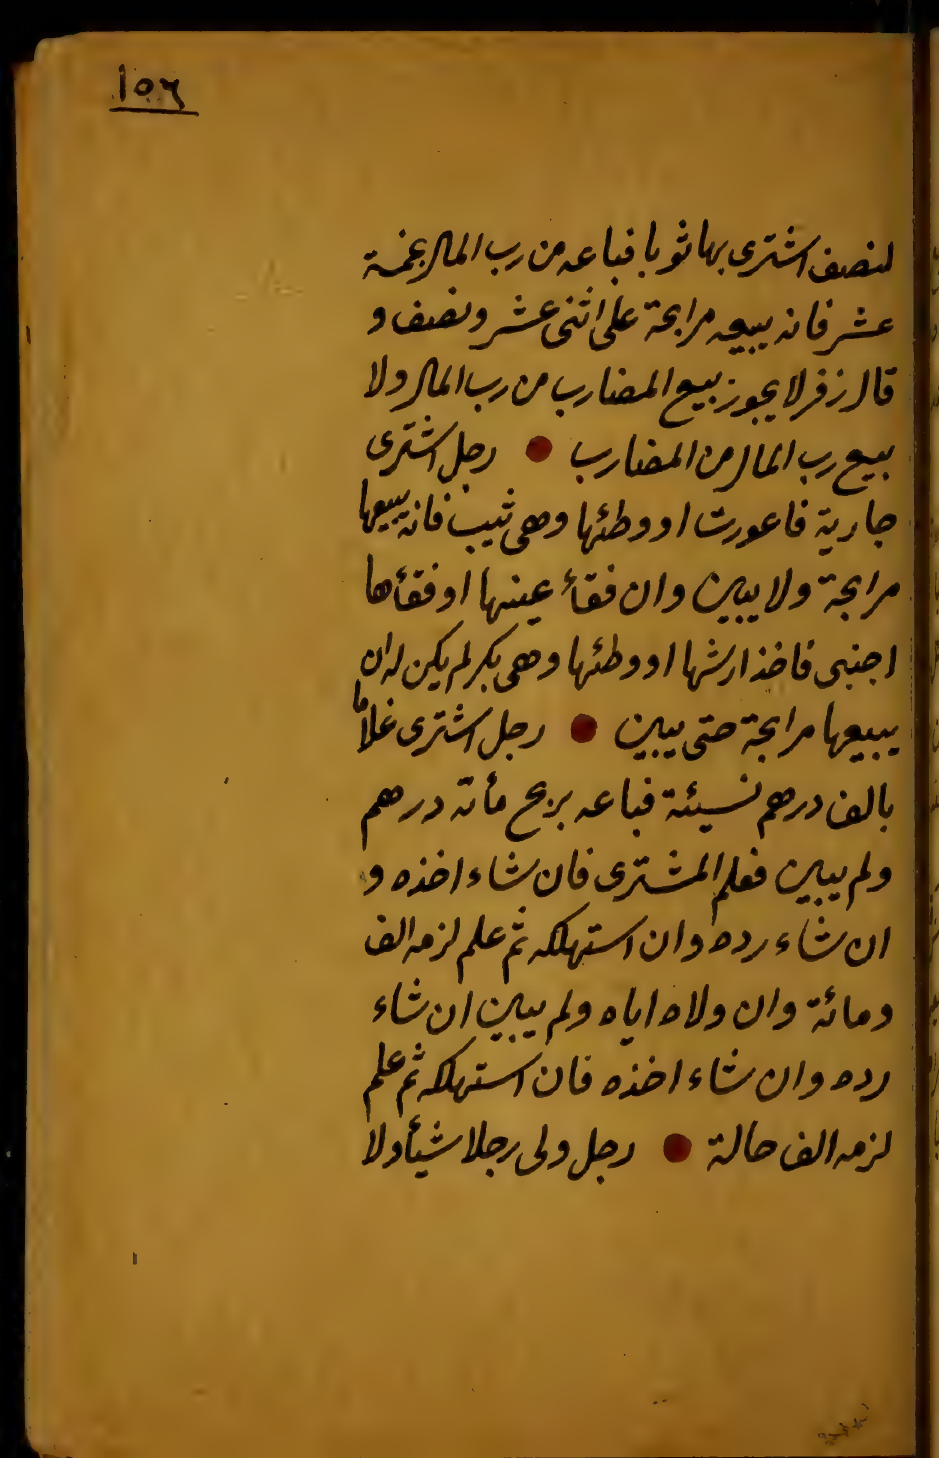 ١٥٦
لنصف اشترى بها ثوبا فباعه من رب المال بخمسة
عشر فانه يبيعه مرابحة على اثنى عشر ونصف و
قال زفر لا يجوز بيع المضارب من رب المال ولا
بيع رب المال من المضارب ● رجل اشترى
جارية فاعورت او وطئها وهى ثيب فانه يبيعها
مرابحة ولا يبين وان فقأ عينها او فقأها
اجنبى فاخذ ارشها او وطئها وهى بكر لم يكن له ان
يبيعها مرابحة حتى يبين ● رجل اشترى غلاما
بالف درهم نسيئة فباعه بربح مأته درهم
ولم يبين فعلم المشترى فان شاء اخذه و
ان شاء رده وان استهلكه ثم علم لزمه الف
ومائة وان ولاه اياه ولم يبين ان شاء
رده وان شاء اخذه فان استهلكه ثم علم
لزمه الف حالة ● رجل ولى رجلا شيأ ولا